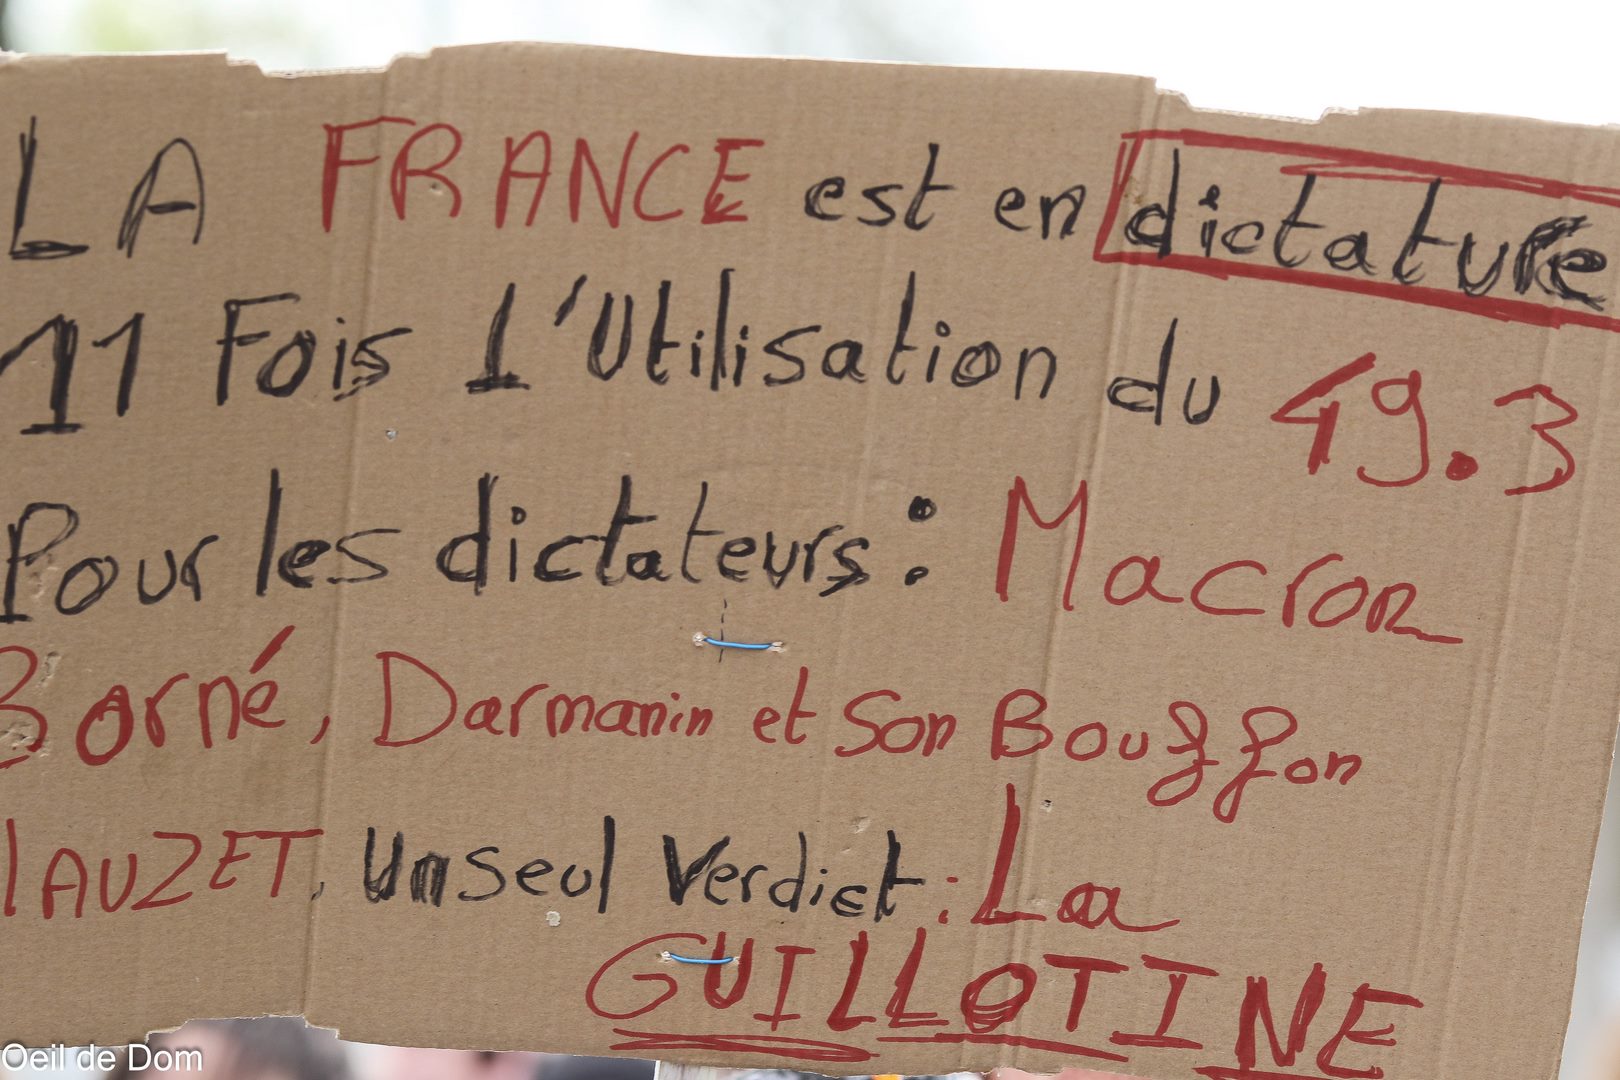 LA FRANCE est en dictature
11 Fois L'Utilisation du 49.3
Pour les dictateurs : Macron
Borné, Darmanin et Son Bouffon
LAUZET, Un Seul Verdict : La
GUILLOTINE
Oeil de Dom